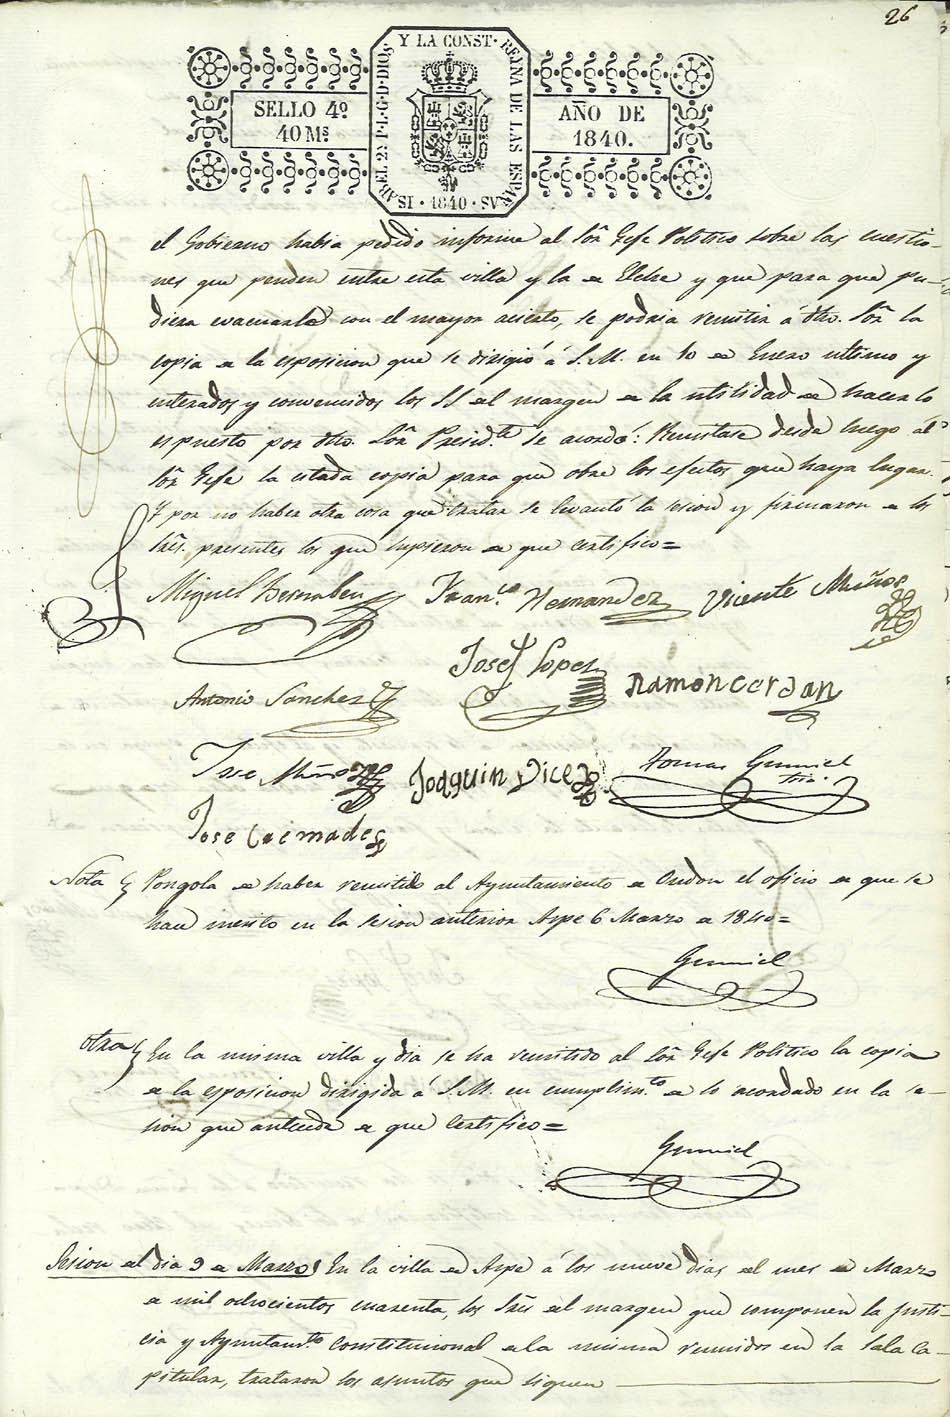 26
ISABEL 2ª P. L. G. D. DIOS Y LA CONST. REYNA DE LAS ESPAÑAS
SELLO 4º
40 Mˢ
AÑO DE
1840.
1840
el Gobierno habia pedido informe al Sōr Gefe Politico sobre las cuestio-
nes que penden entre esta villa y la de Elche y que para que pu-
diera evacuarlo con el mayor acierto, se podria remitir á dho. Sōr la
copia de la esposicion que se dirigió á S.M. en 10 de Enero ultimo y
enterados y convenidos los SS del margen de la utilidad de hacerlo
espuesto por dho. Sōr Presid.te se acordó: Remitase desde luego al
Sōr Gefe la citada copia para que obre los efectos que haya lugar.
Y por no haber otra cosa que tratar se levantó la sesion y firmaron de los
Srēs. presentes los que supieron de que certifico =
Miguel Bernabeu Fran.co Hernandez Vicente Muños
Jose Lopez
Antonio Sanchez Ramon cerdan
Jose Muños Joaquin Vicedo Tomas Gumiel
Srio.
Jose Cremades
Nota Pongola de haber remitido al Ayuntamiento de Ondon el oficio de que se
hace merito en la sesion anterior Aspe 6 Marzo de 1840 =
Gumiel
Otra En la misma villa y dia se ha remitido al Sōr Gefe Politico la copia
de la esposicion dirigida á S.M. en cumplim.to de lo acordado en la se-
sion que antecede de que Certifico =
Gumiel
Sesion del dia 9 de Marzo En la villa de Aspe á los nueve dias del mes de Marzo
de mil ochocientos cuarenta, los Srēs del margen que componen la Justi-
cia y Ayuntam.to Constitucional de la misma reunidos en la Sala Ca-
pitular, trataron los asuntos que siguen